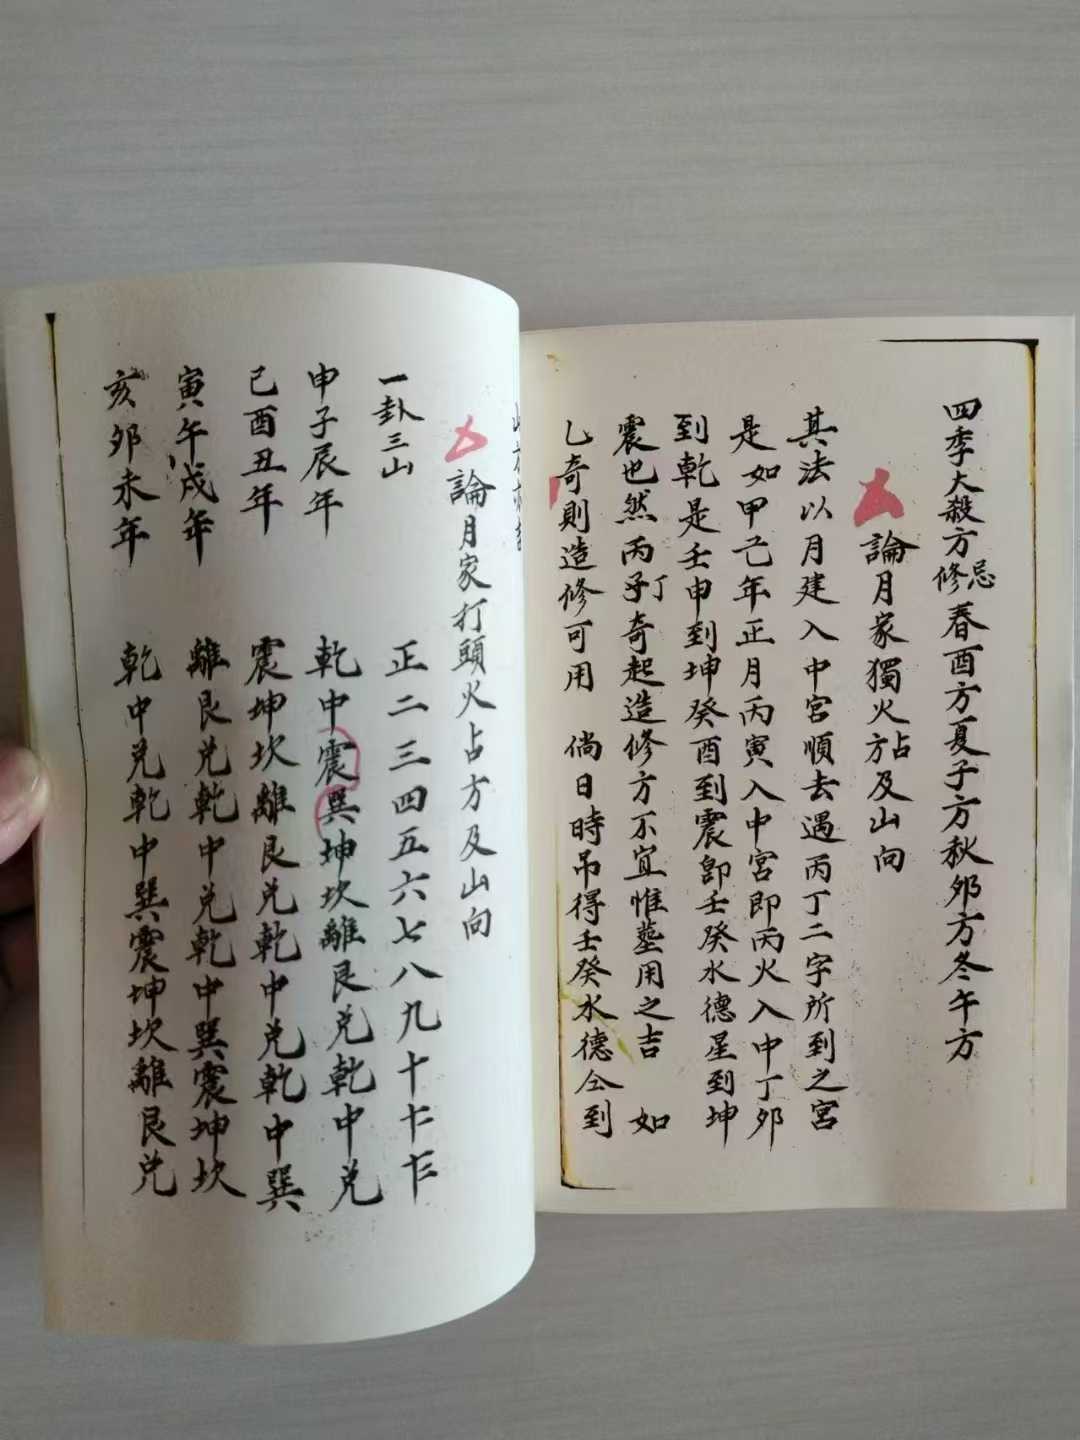 四季大殺方修忌春酉方夏子方秋夘方冬午方
論月家獨火占方及山向
其法以月建入中宮順去遇丙丁二字所到之宮
是如甲己年正月丙寅入中宮即丙火入中丁夘
到乾是壬申到坤癸酉到震卽壬癸水德星到坤
震也然丙丁奇起造修方不宜惟墓用之吉 如
乙奇則造修可用 倘日時吊得壬癸水德仝到
論月家打頭火占方及山向
一卦三山 正二三四五六七八九十十一十二
申子辰年 乾中震巽坤坎離艮兑乾中兑
己酉丑年 震坤坎離艮兑乾中兑乾中巽
寅午戌年 離艮兑乾中兑乾中巽震坤坎
亥夘未年 乾中兑乾中巽震坤坎離艮兑